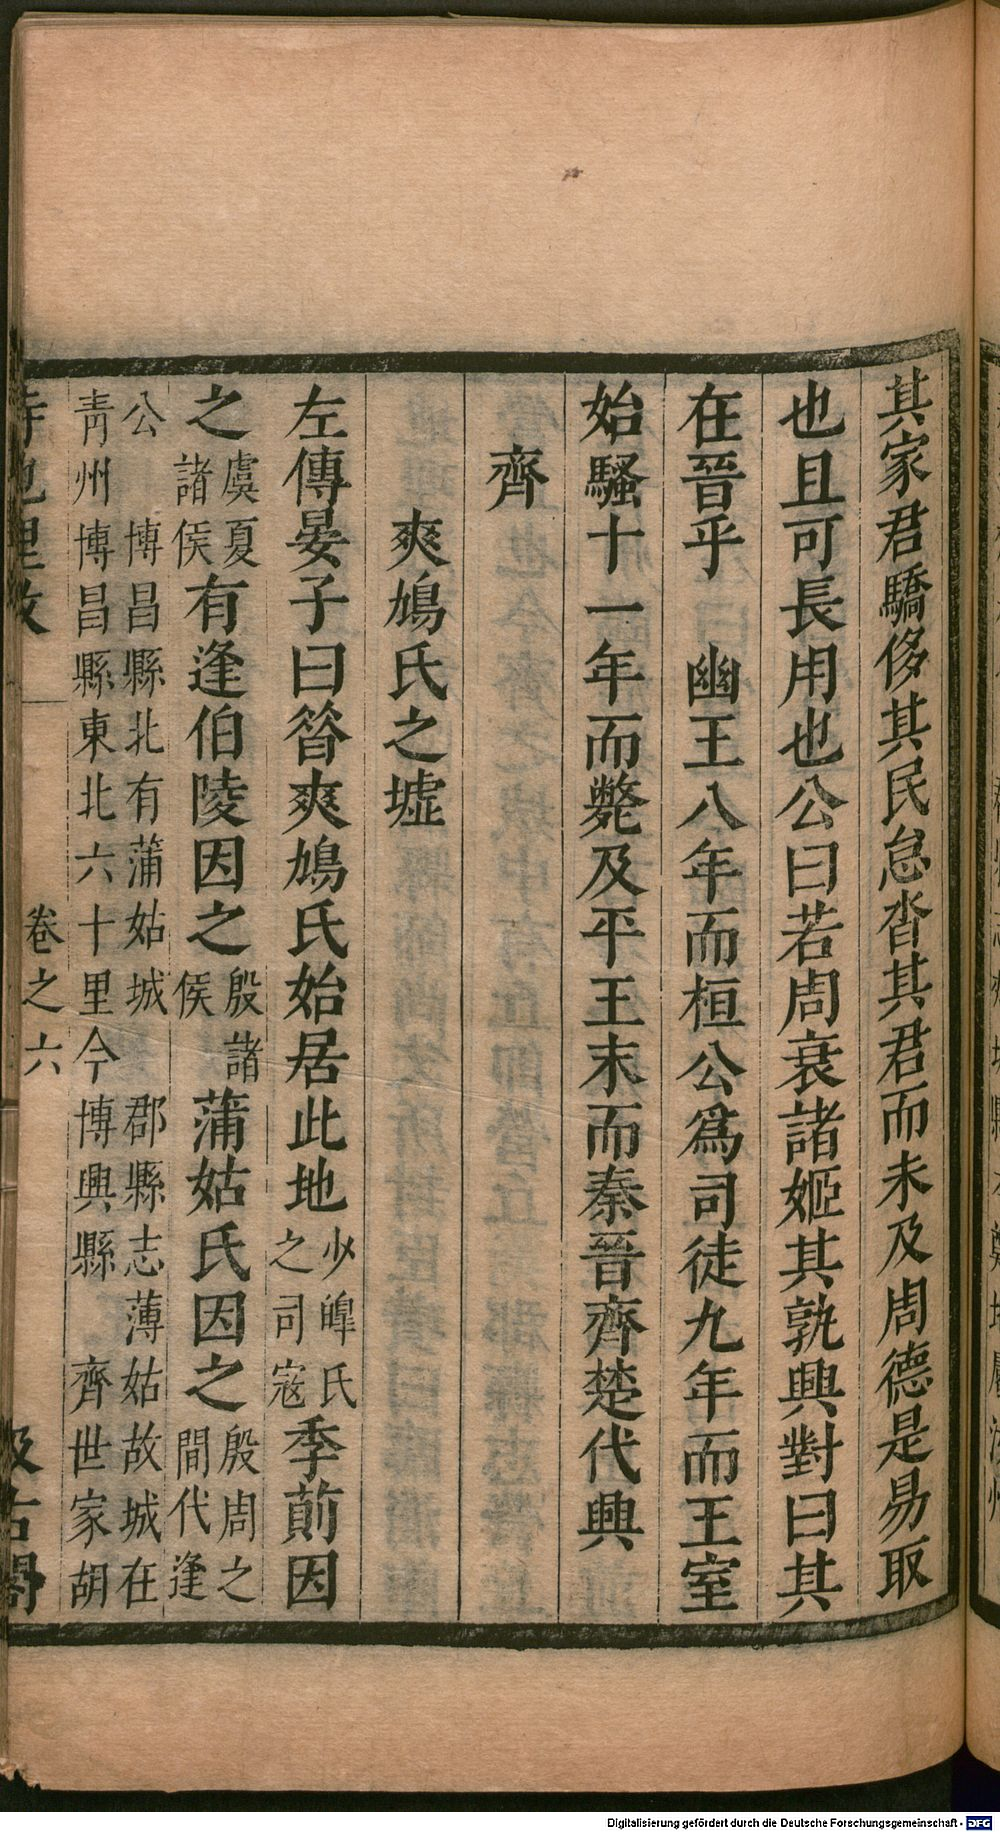 其家君驕侈其民怠沓其君而未及周德是易取
也且可長用也公曰若周衰諸姬其孰興對曰其
在晉乎　幽王八年而桓公爲司徒九年而王室
始騷十一年而斃及平王末而秦晉齊楚代興
齊
爽鳩氏之墟
左傳晏子曰昝爽鳩氏始居此地少皥氏之司寇季萴因
之虞夏諸侯有逢伯陵因之殷諸侯蒲姑氏因之殷周之間代逢
公　博昌縣北有蒲姑城　郡縣志薄姑故城在
青州博昌縣東北六十里今博興縣　齊世家胡
卷之六
汲古閣
Digitalisierung gefördert durch die Deutsche Forschungsgemeinschaft - DFG